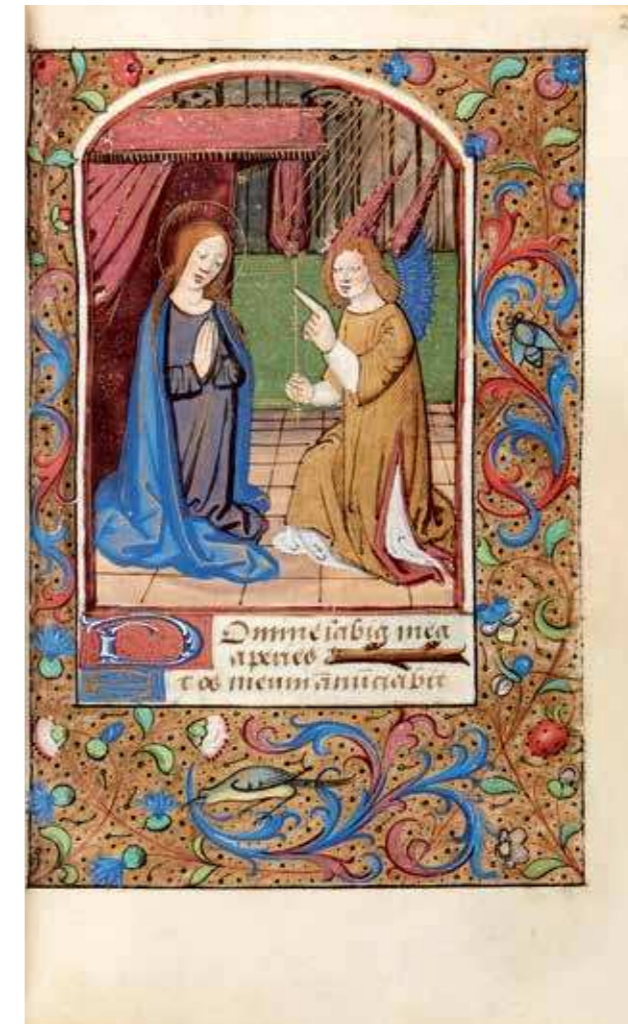 2
Domine labia mea
aperies
t os meum ānūciabit